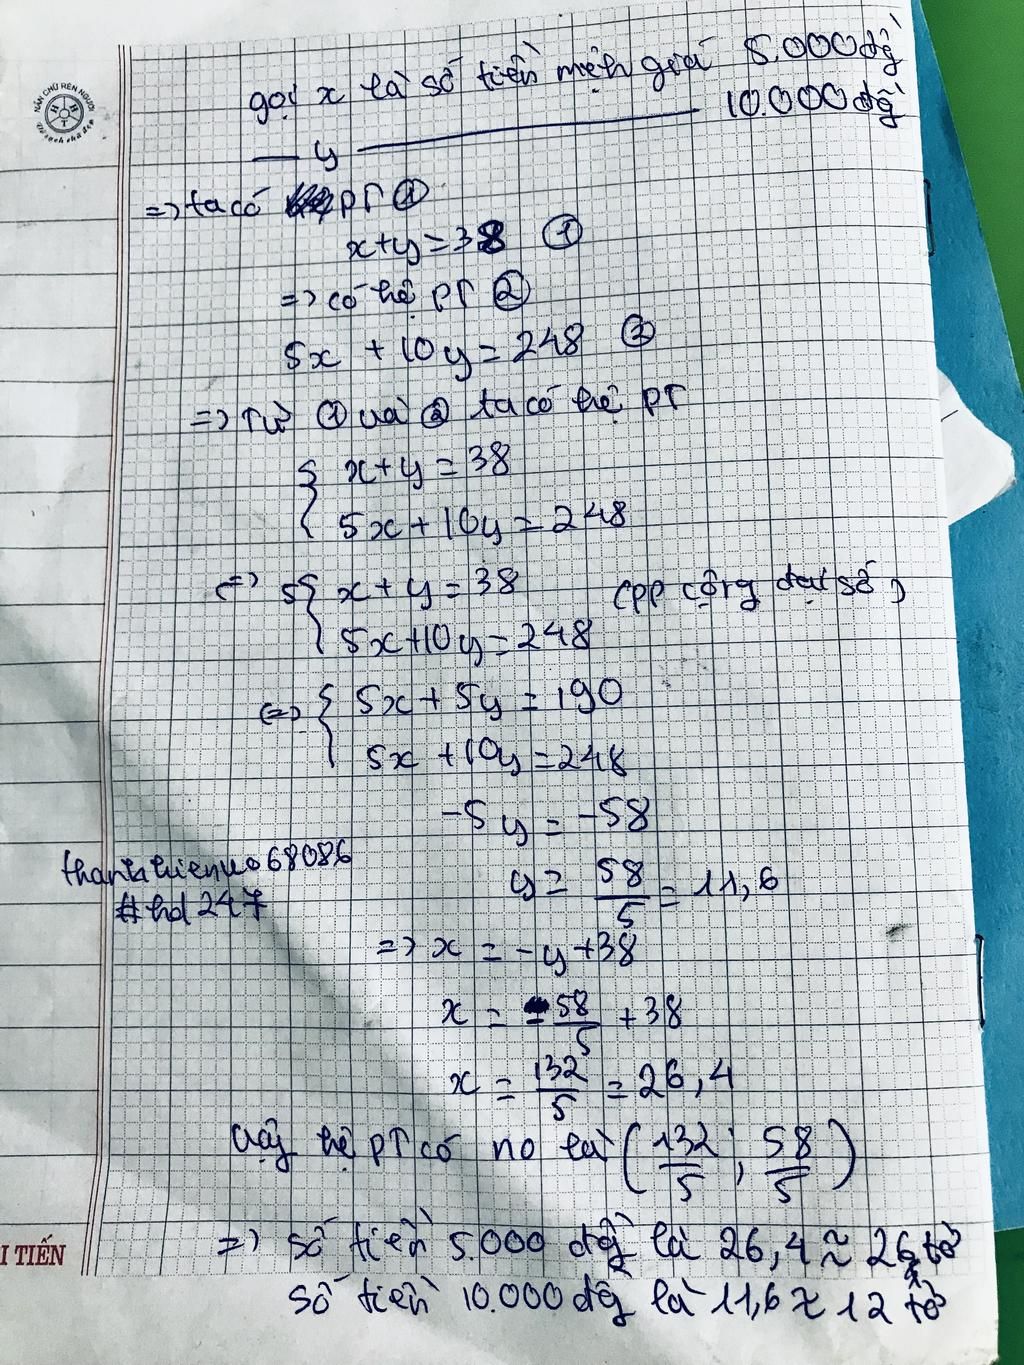 NẮN CHỮ RÈN NGƯỜI
gọi x là số tiền mệnh giá 5.000 đồng
— y ——— 10.000 đồng
=> ta có PT ①
x+y=38 ①
=> có hệ PT ②
5x +10y=248 ②
=> Từ ① và ② ta có hệ PT
{ x+y=38
5x+10y=248
<=> 5{ x+y=38 (pp cộng đại số)
5x+10y=248
<=> { 5x+5y=190
5x+10y=248
-5y=-58
thanhhienvo68086
#hd247
y= 58/5 =11,6
=> x = -y+38
x = -58/5 +38
x = 132/5 = 26,4
Vậy hệ PT có no là (132/5; 58/5)
=> số tiền 5.000 đồng là 26,4 ≈ 26 tờ
I TIẾN
số tiền 10.000 đồng là 11,6 ≈ 12 tờ